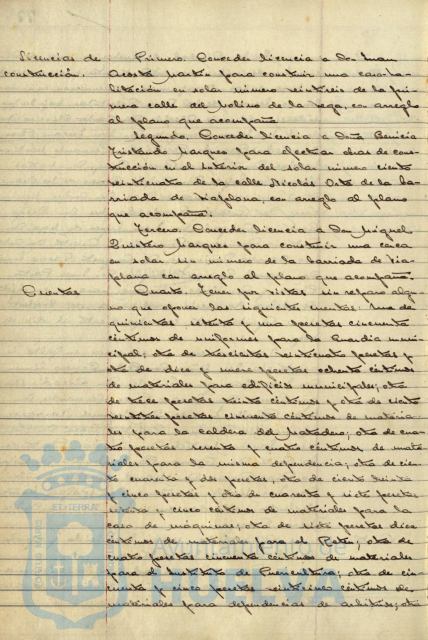 Licencias de construcción.
Primero. Conceder licencia a Don Juan
Acosta Martín para construir una casa ha-
bitación en solar número veintiseis de la pri-
mera calle del Molino de la Vega, con arreglo
al plano que acompaña.
Segundo. Conceder licencia a Doña Benicia
Tristancho Marques para efectuar obras de cons-
trucción en el interior del solar número ciento
veinticuatro de la calle Nicolás Orta de la ba-
rriada de Viaplana, con arreglo al plano
que acompaña.
Tercero. Conceder licencia a Don Miguel
Quintero Marques para construir una casa
en solar sin número de la barriada de Via-
plana con arreglo al plano que acompaña.
Cuentas
Cuarto. Tener por vistas sin reparo algu-
no que oponer las siguientes cuentas: Una de
quinientas setenta y una pesetas cincuenta
céntimos de uniformes para la Guardia muni-
cipal; otra de trescientas veinticuatro pesetas y
otra de diez y nueve pesetas ochenta céntimos
de materiales para edificios municipales; otra
de trece pesetas treinta céntimos y otra de ciento
pesetas cincuenta céntimos de materia-
les para la caldera del Matadero; otra de cua-
tro pesetas sesenta y cuatro céntimos de mate-
riales para la misma dependencia; otra de cien-
to cuarenta y dos pesetas, otra de ciento treinta
y cinco pesetas y otra de cuarenta y siete pesetas
setenta y cinco céntimos de materiales para la
casa de máquinas; otra de siete pesetas diez
céntimos de materiales para el Retén; otra de
cuatro pesetas cincuenta céntimos de materiales
para el Instituto de Puericultura; otra de cin-
cuenta y cinco pesetas veinticinco céntimos de
materiales para dependencias de arbitrios; otra
ET TERRA